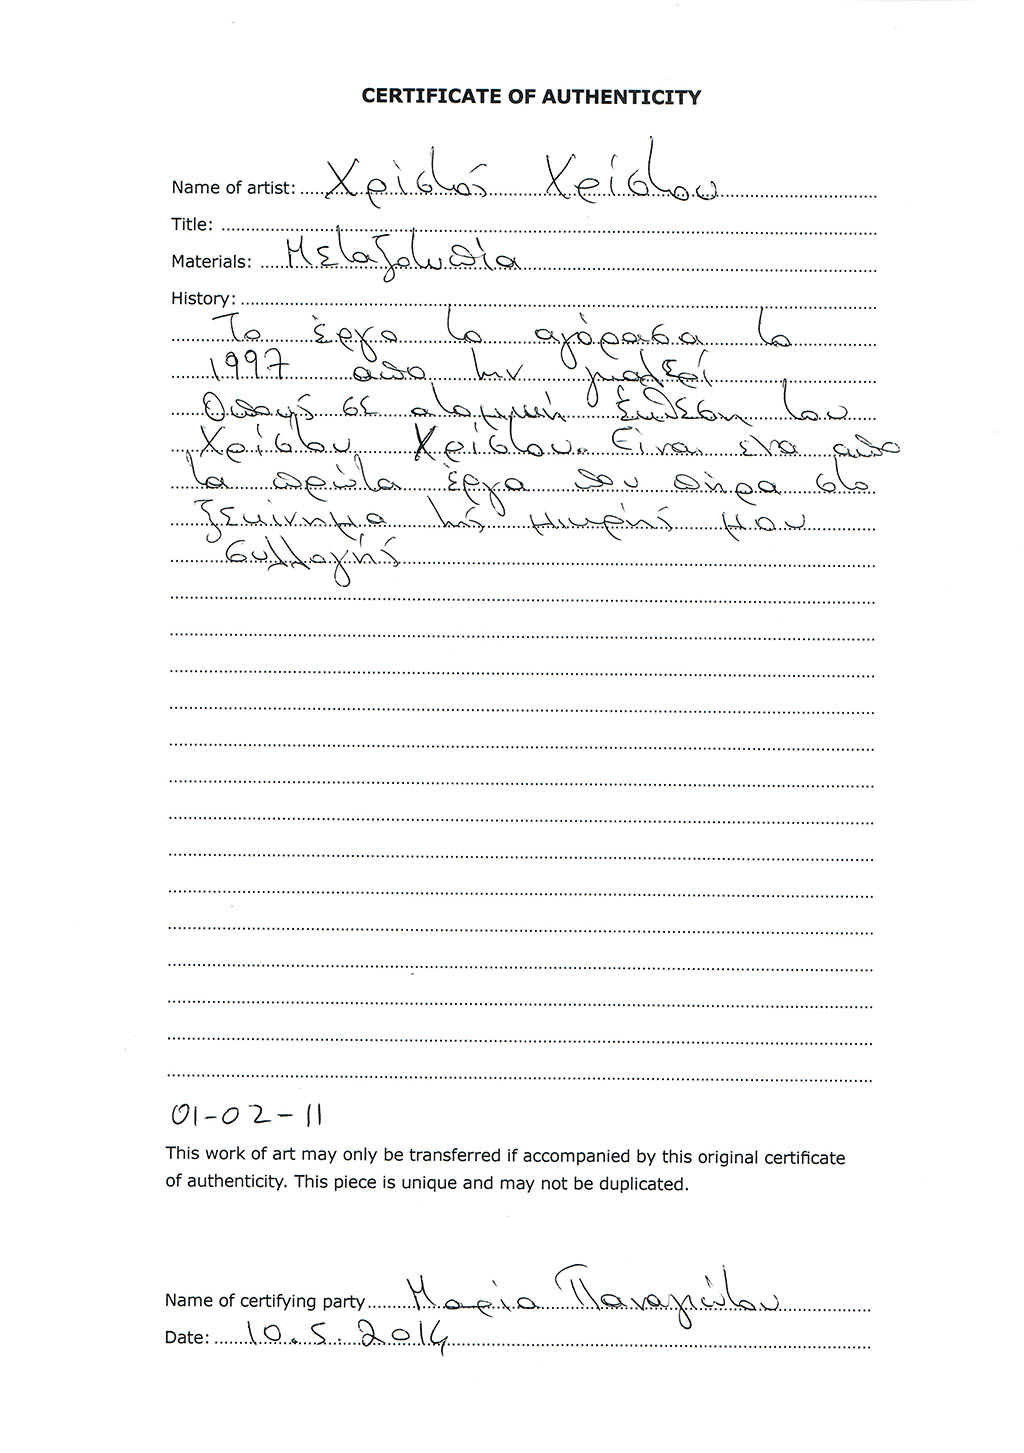 CERTIFICATE OF AUTHENTICITY
Name of artist: Χρίστος Χρίστου
Title:
Materials: Μεταξοτυπία
History:
Το έργο το αγόρασα το
1997 από την γκαλερί
Οπους σε ατομική έκθεση του
Χρίστου Χρίστου. Είναι ένα από
τα πρώτα έργα που πήρα στο
ξεκίνημα της μικρής μου
συλλογής
01-02-11
This work of art may only be transferred if accompanied by this original certificate
of authenticity. This piece is unique and may not be duplicated.
Name of certifying party Μαρία Παναγιώτου
Date: 10.5.2014